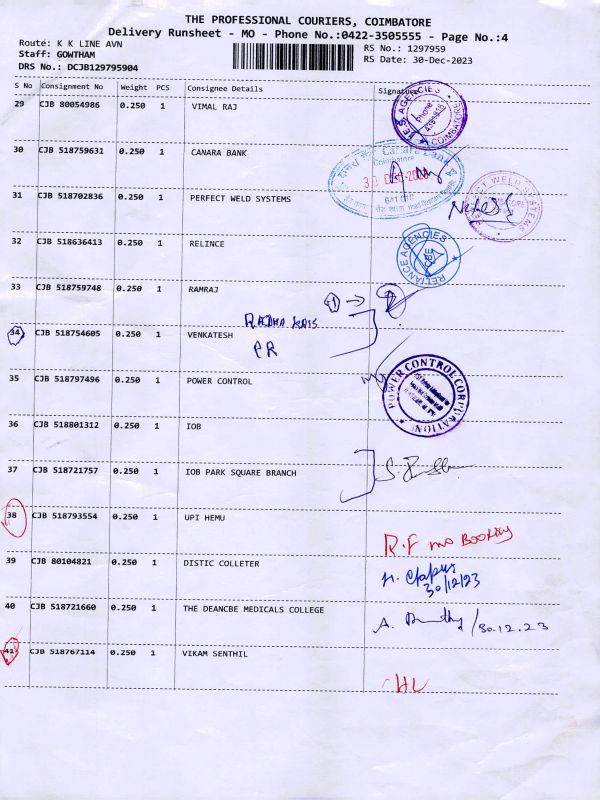 THE PROFESSIONAL COURIERS, COIMBATORE
Delivery Runsheet - MO - Phone No.:0422-3505555 - Page No.:4
Route: K K LINE AVN
RS No.: 1297959
Staff: GOWTHAM
RS Date: 30-Dec-2023
DRS No.: DCJB129795904
S No Consignment No Weight PCS Consignee Details Signature
29 CJB 80054986 0.250 1 VIMAL RAJ
AGENCIES
Phone
30 CJB 518759631 0.250 1 CANARA BANK
Canara Bank
Coimbatore
31 CJB 518702836 0.250 1 PERFECT WELD SYSTEMS
WELD SYSTEMS
32 CJB 518636413 0.250 1 RELINCE
RELIANCE AGENCIES
CBE
33 CJB 518759748 0.250 1 RAMRAJ
34 CJB 518754605 0.250 1 VENKATESH
PR
35 CJB 518797496 0.250 1 POWER CONTROL
POWER CONTROL CORPORATION
36 CJB 518801312 0.250 1 IOB
37 CJB 518721757 0.250 1 IOB PARK SQUARE BRANCH
38 CJB 518793554 0.250 1 UPI HEMU
39 CJB 80104821 0.250 1 DISTIC COLLETER
30/12/23
40 CJB 518721660 0.250 1 THE DEANCBE MEDICALS COLLEGE
30.12.23
41 CJB 518767114 0.250 1 VIKAM SENTHIL